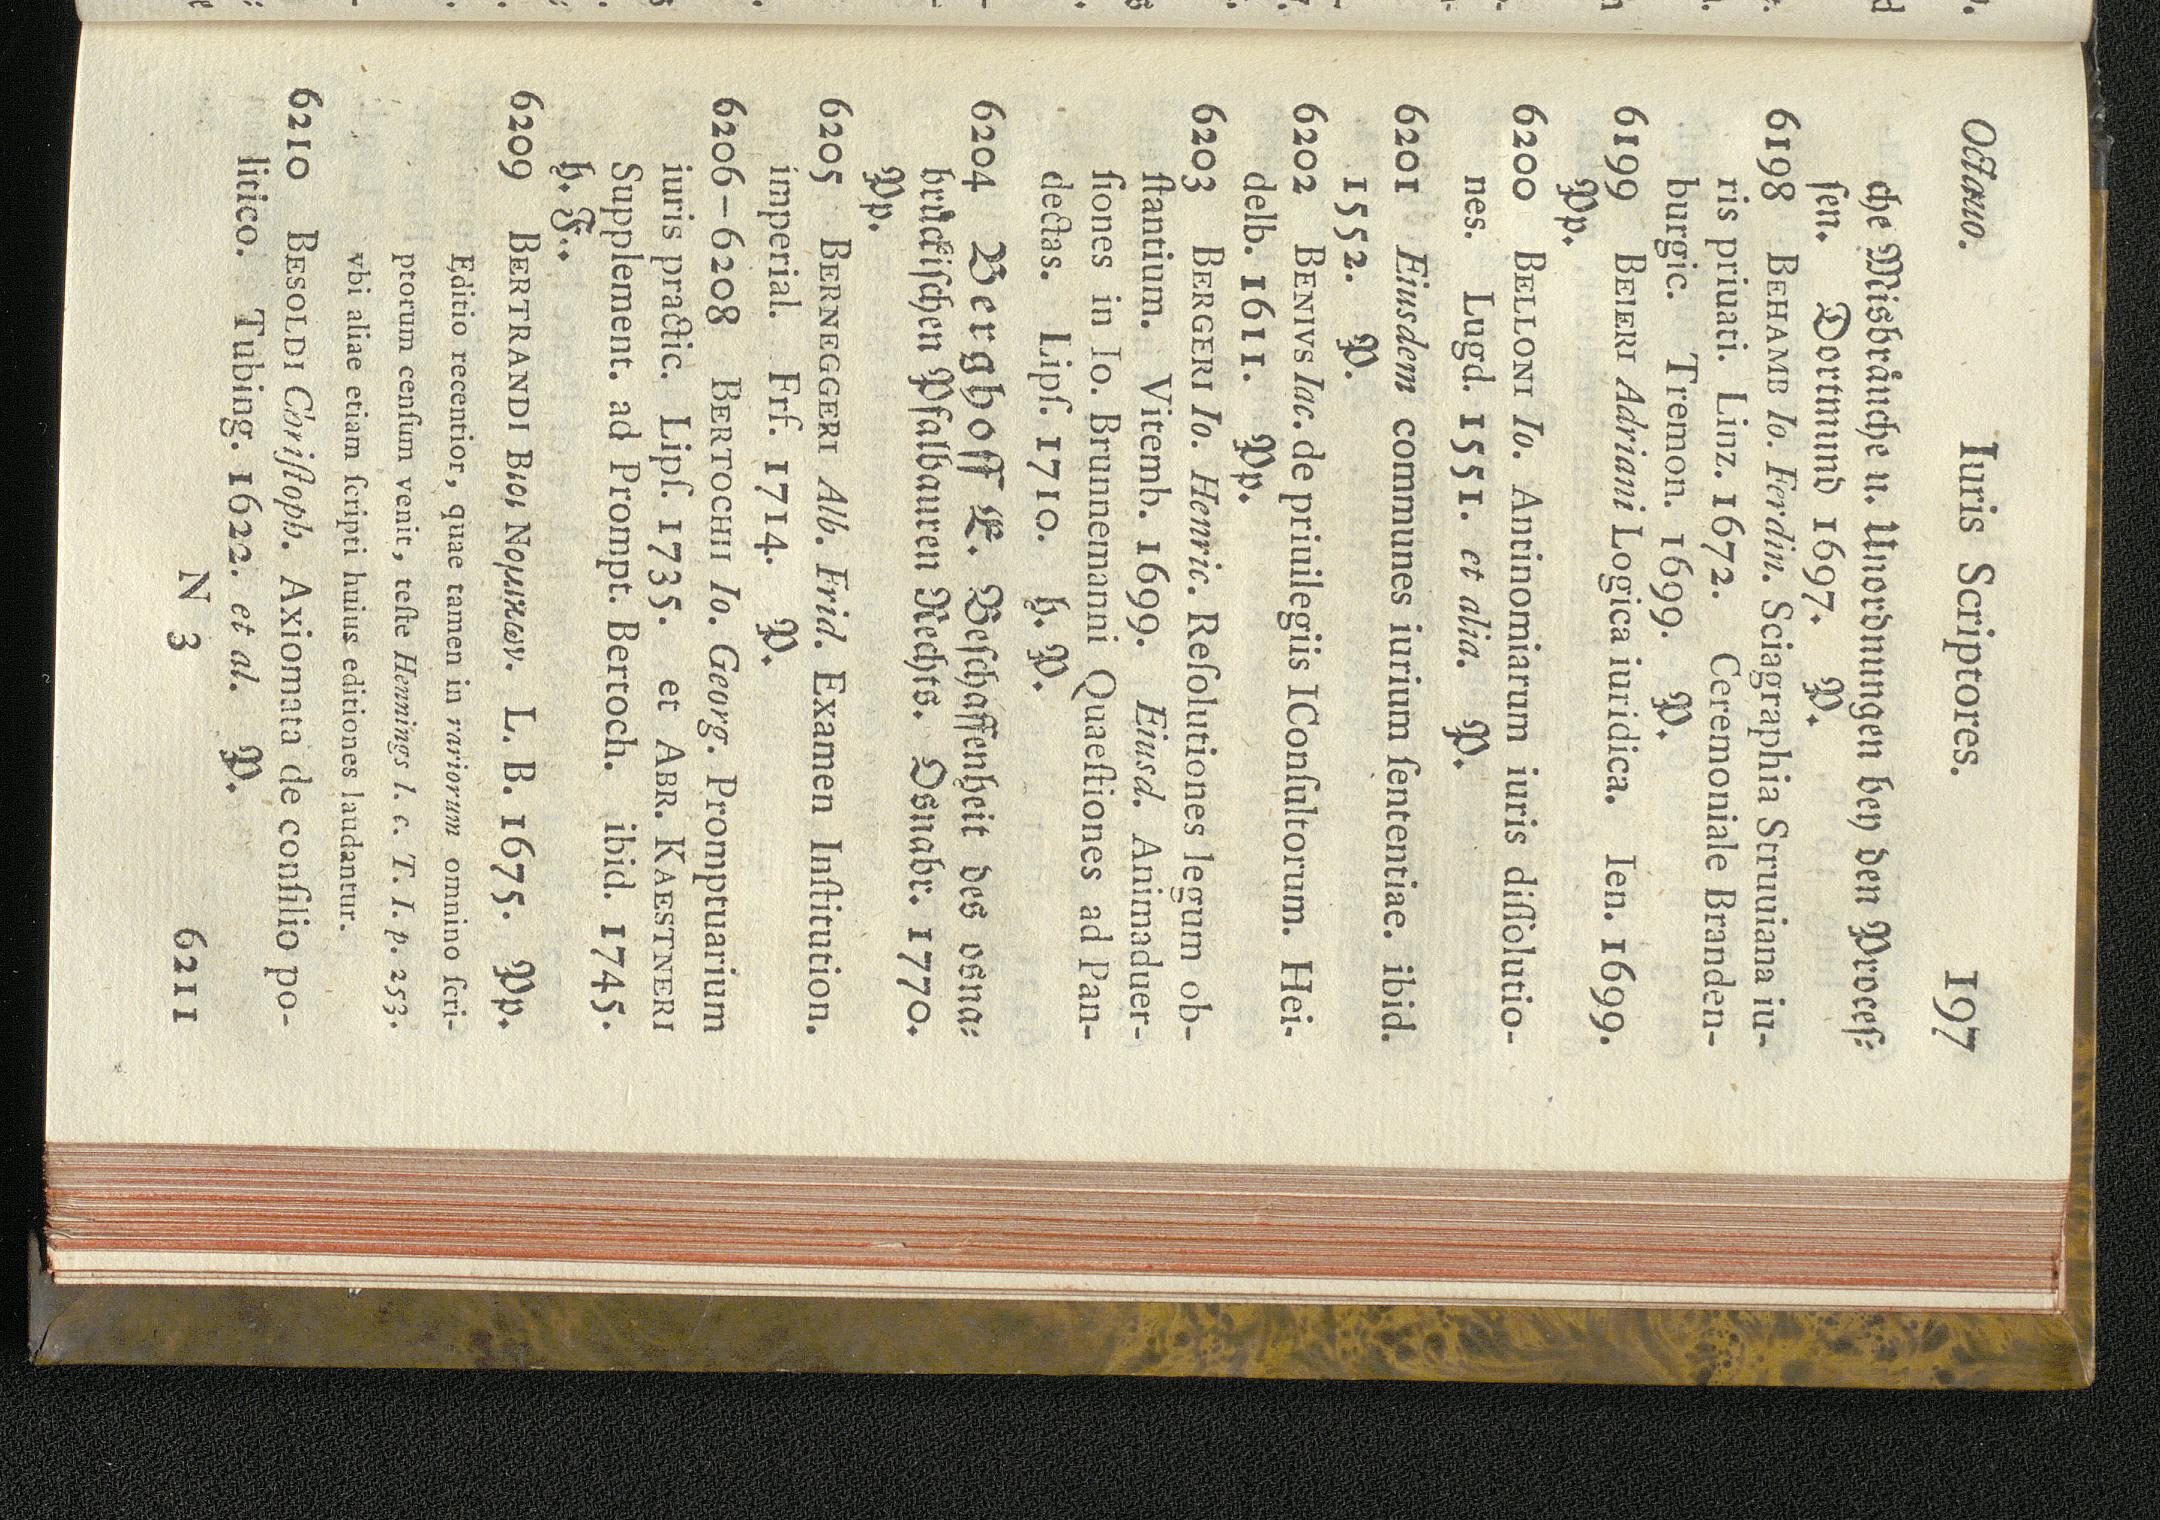 Octauo. Iuris Scriptores. 197
che Misbräuche u. Unordnungen bey den Proceſ⸗
ſen. Dortmund 1697. P.
6198 BEHAMB Io. Ferdin. Sciagraphia Struuiana iu-
ris priuati. Linz. 1672. Ceremoniale Branden-
burgic. Tremon. 1699. P.
6199 BEIERI Adriani Logica iuridica. Ien. 1699.
Pp.
6200 BELLONI Io. Antinomiarum iuris diſſolutio-
nes. Lugd. 1551. et alia. P.
6201 Eiusdem communes iurium ſententiae. ibid.
1552. P.
6202 BENIVS Iac. de priuilegiis IConſultorum. Hei-
delb. 1611. Pp.
6203 BERGERI Io. Henric. Reſolutiones legum ob-
ſtantium. Vitemb. 1699. Eiusd. Animaduer-
ſiones in Io. Brunnemanni Quaeſtiones ad Pan-
dectas. Lipſ. 1710. h. P.
6204 Berghoff L. Beſchaffenheit des osna⸗
brückiſchen Pfalbauren Rechts. Osnabr. 1770.
Pp.
6205 BERNEGGERI Alb. Frid. Examen Inſtitution.
imperial. Frf. 1714. P.
6206–6208 BERTOCHII Io. Georg. Promptuarium
iuris practic. Lipſ. 1735. et ABR. KAESTNERI
Supplement. ad Prompt. Bertoch. ibid. 1745.
h. F..
6209 BERTRANDI Βιοι Νομικων. L. B. 1675. Pp.
Editio recentior, quae tamen in rariorum omnino ſcri-
ptorum cenſum venit, teſte Hennings l. c. T. I. p. 253.
vbi aliae etiam ſcripti huius editiones laudantur.
6210 BESOLDI Chriſtoph. Axiomata de conſilio po-
litico. Tubing. 1622. et al. P.
N 3 6211